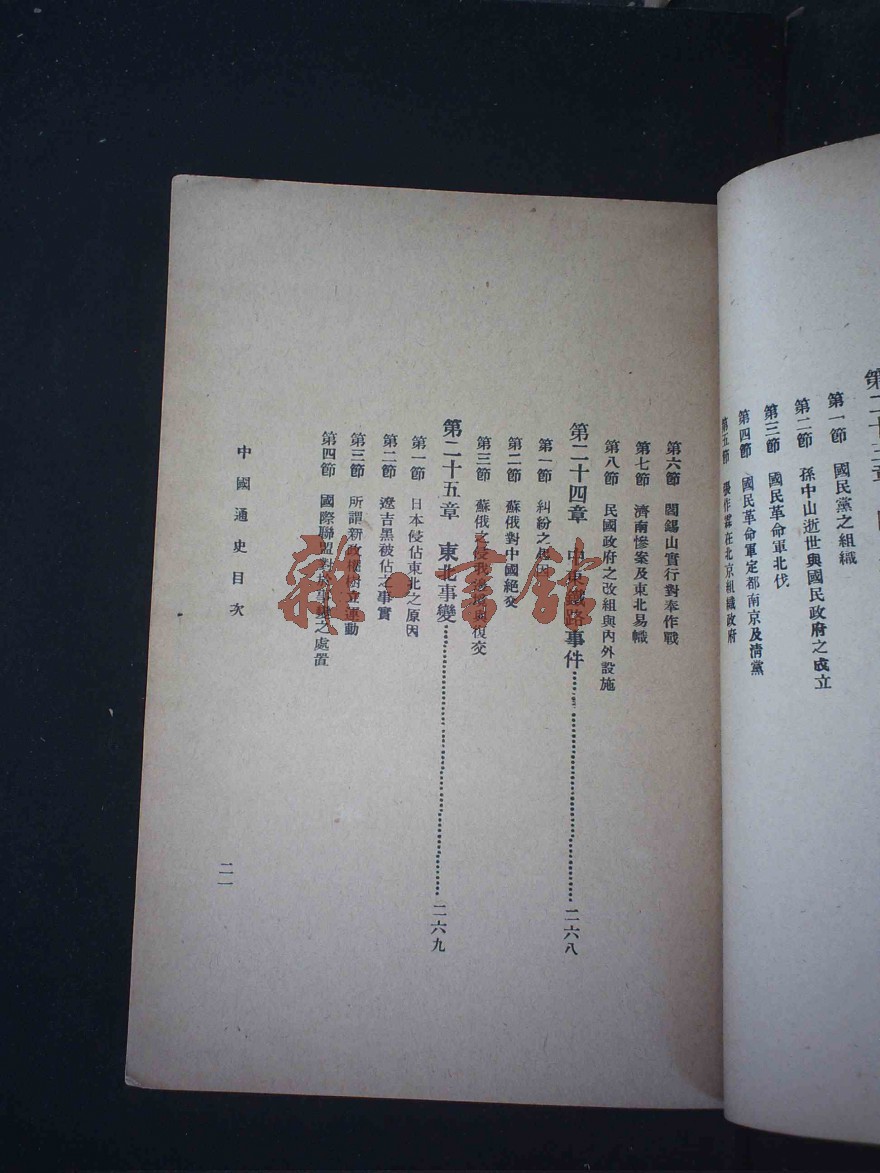 第二十三章
第一節 國民黨之組織
第二節 孫中山逝世與國民政府之成立
第三節 國民革命軍北伐
第四節 國民革命軍定都南京及清黨
第五節 張作霖在北京組織政府
第六節 閻錫山實行對奉作戰
第七節 濟南慘案及東北易幟
第八節 民國政府之改組與內外設施
第二十四章 中東鐵路事件 二六八
第一節 糾紛之起因
第二節 蘇俄對中國絕交
第三節 蘇俄之侵我邊境與復交
第二十五章 東北事變 二六九
第一節 日本侵佔東北之原因
第二節 遼吉黑被佔之事實
第三節 所謂新政權樹立運動
第四節 國際聯盟對於事變之處置
中國通史目次
二一
雜·書館